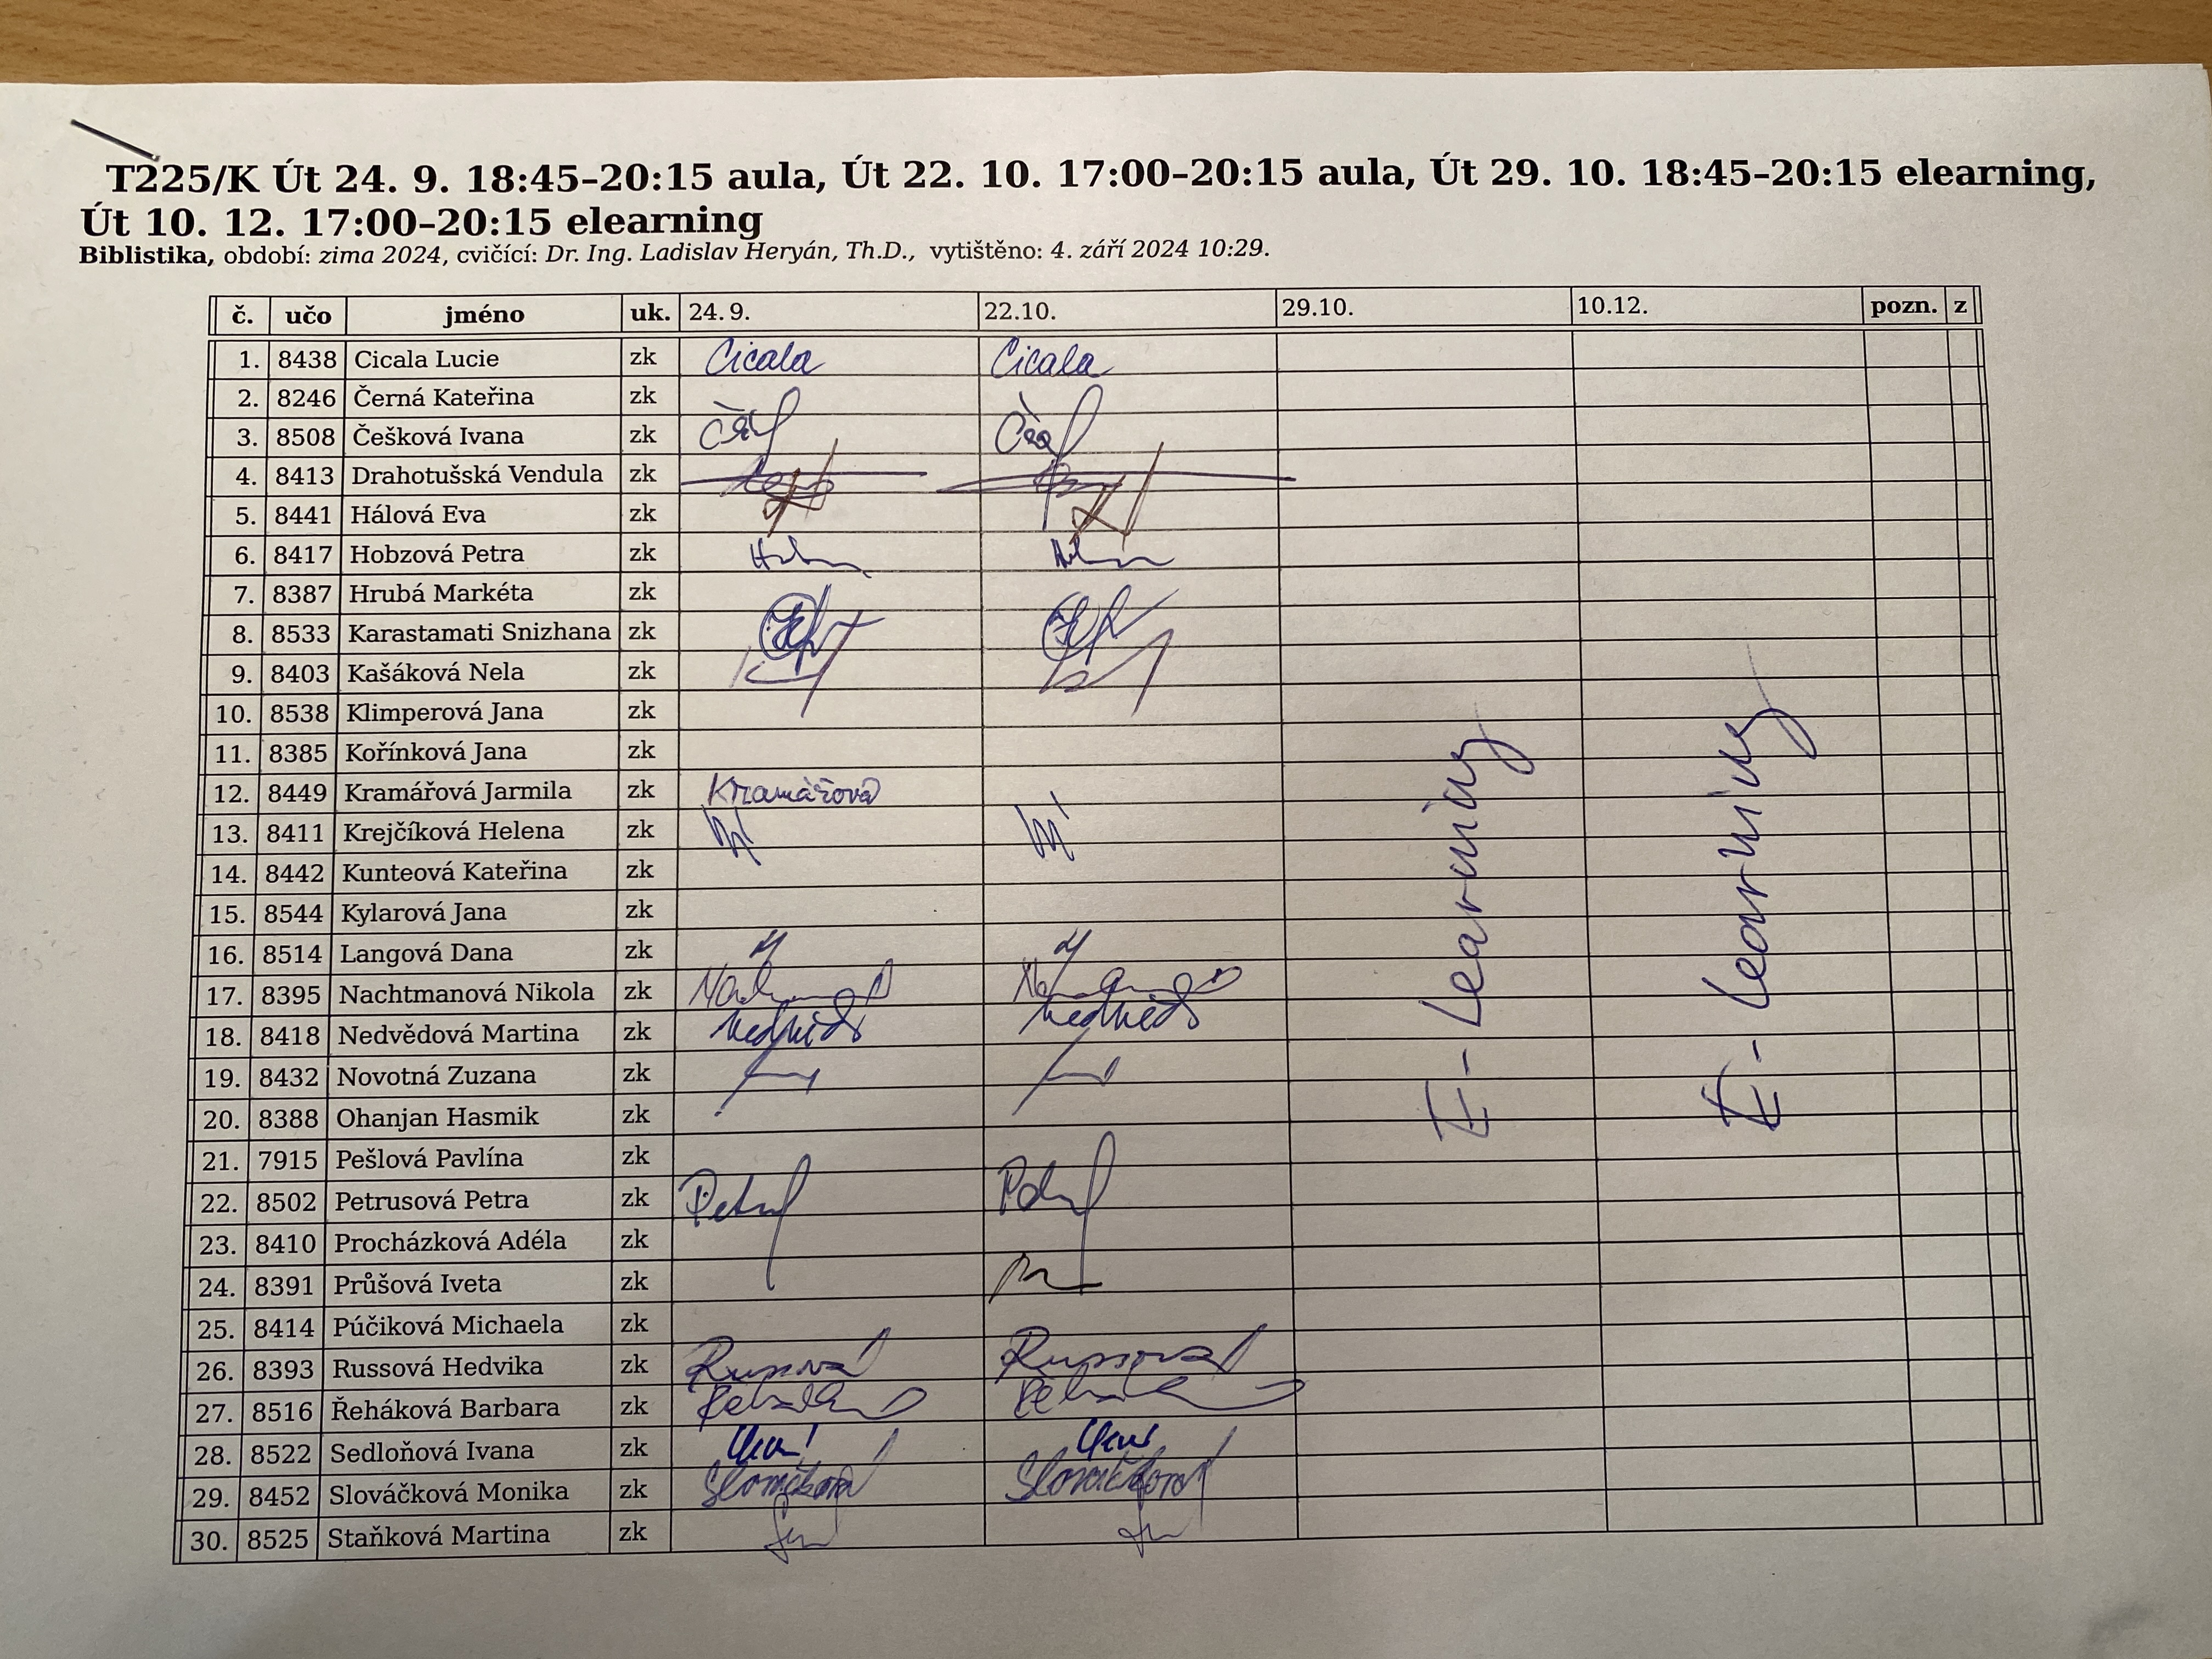 T225/K Út 24. 9. 18:45–20:15 aula, Út 22. 10. 17:00–20:15 aula, Út 29. 10. 18:45–20:15 elearning,
Út 10. 12. 17:00–20:15 elearning
Biblistika, období: zima 2024, cvičící: Dr. Ing. Ladislav Heryán, Th.D., vytištěno: 4. září 2024 10:29.
č. učo jméno uk. 24. 9. 22.10. 29.10. 10.12. pozn. z
1. 8438 Cicala Lucie zk Cicala Cicala
2. 8246 Černá Kateřina zk
3. 8508 Češková Ivana zk
4. 8413 Drahotušská Vendula zk
5. 8441 Hálová Eva zk
6. 8417 Hobzová Petra zk
7. 8387 Hrubá Markéta zk
8. 8533 Karastamati Snizhana zk
9. 8403 Kašáková Nela zk
10. 8538 Klimperová Jana zk
11. 8385 Kořínková Jana zk
12. 8449 Kramářová Jarmila zk Kramářová
13. 8411 Krejčíková Helena zk
14. 8442 Kunteová Kateřina zk
15. 8544 Kylarová Jana zk
16. 8514 Langová Dana zk
17. 8395 Nachtmanová Nikola zk
18. 8418 Nedvědová Martina zk
19. 8432 Novotná Zuzana zk
20. 8388 Ohanjan Hasmik zk
21. 7915 Pešlová Pavlína zk
22. 8502 Petrusová Petra zk
23. 8410 Procházková Adéla zk
24. 8391 Průšová Iveta zk
25. 8414 Púčiková Michaela zk
26. 8393 Russová Hedvika zk Russová Russová
27. 8516 Řeháková Barbara zk
28. 8522 Sedloňová Ivana zk
29. 8452 Slováčková Monika zk Slováčková Slováčková
30. 8525 Staňková Martina zk
E-Learning
E-Learning